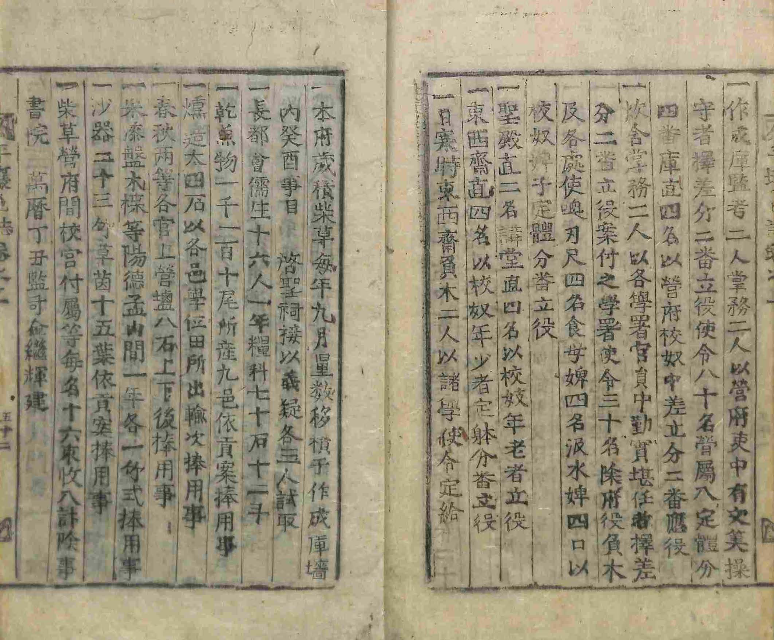 一作成庫監考二人掌務二人以營府吏中有文美操
守者擇差分二番立役使令八十名營屬八定體分
四番庫直四名以營府校奴中差立分二番應役
一炊舍掌務二人以各學署官員中勤實堪任者擇差
分二番立役案付之學署使令三十名除府役負木
及各處使喚刃尺四名食母婢四名汲水婢四口以
校奴婢子定體分番立役
一聖殿直二名講堂直四名以校奴年老者立役
一東西齋直四名以校奴年少者定躰分番立役
一日寒時東西齋負木二人以諸學使令定給
一本府歲積柴草每年九月量數移積于作成庫墻
內癸酉事目 啓聖祠接以義疑各五人試取
一長都會儒生十六人一年糧料七十石十二斗
一乾魚物一千二百十尾所産九邑依貢案捧用事
一燻造太四石以各邑學位田所出輸次捧用事
春秋兩等各官上營鹽八石上下後捧用事
一米 盤木楪等陽德孟山間一年各一竹式捧用事
一沙器二十三竹草茵十五葉依貢案捧用事
一柴草營府間校宮付屬等每名十六束收八計除事
書院 萬曆丁丑監司金繼輝建
五十二